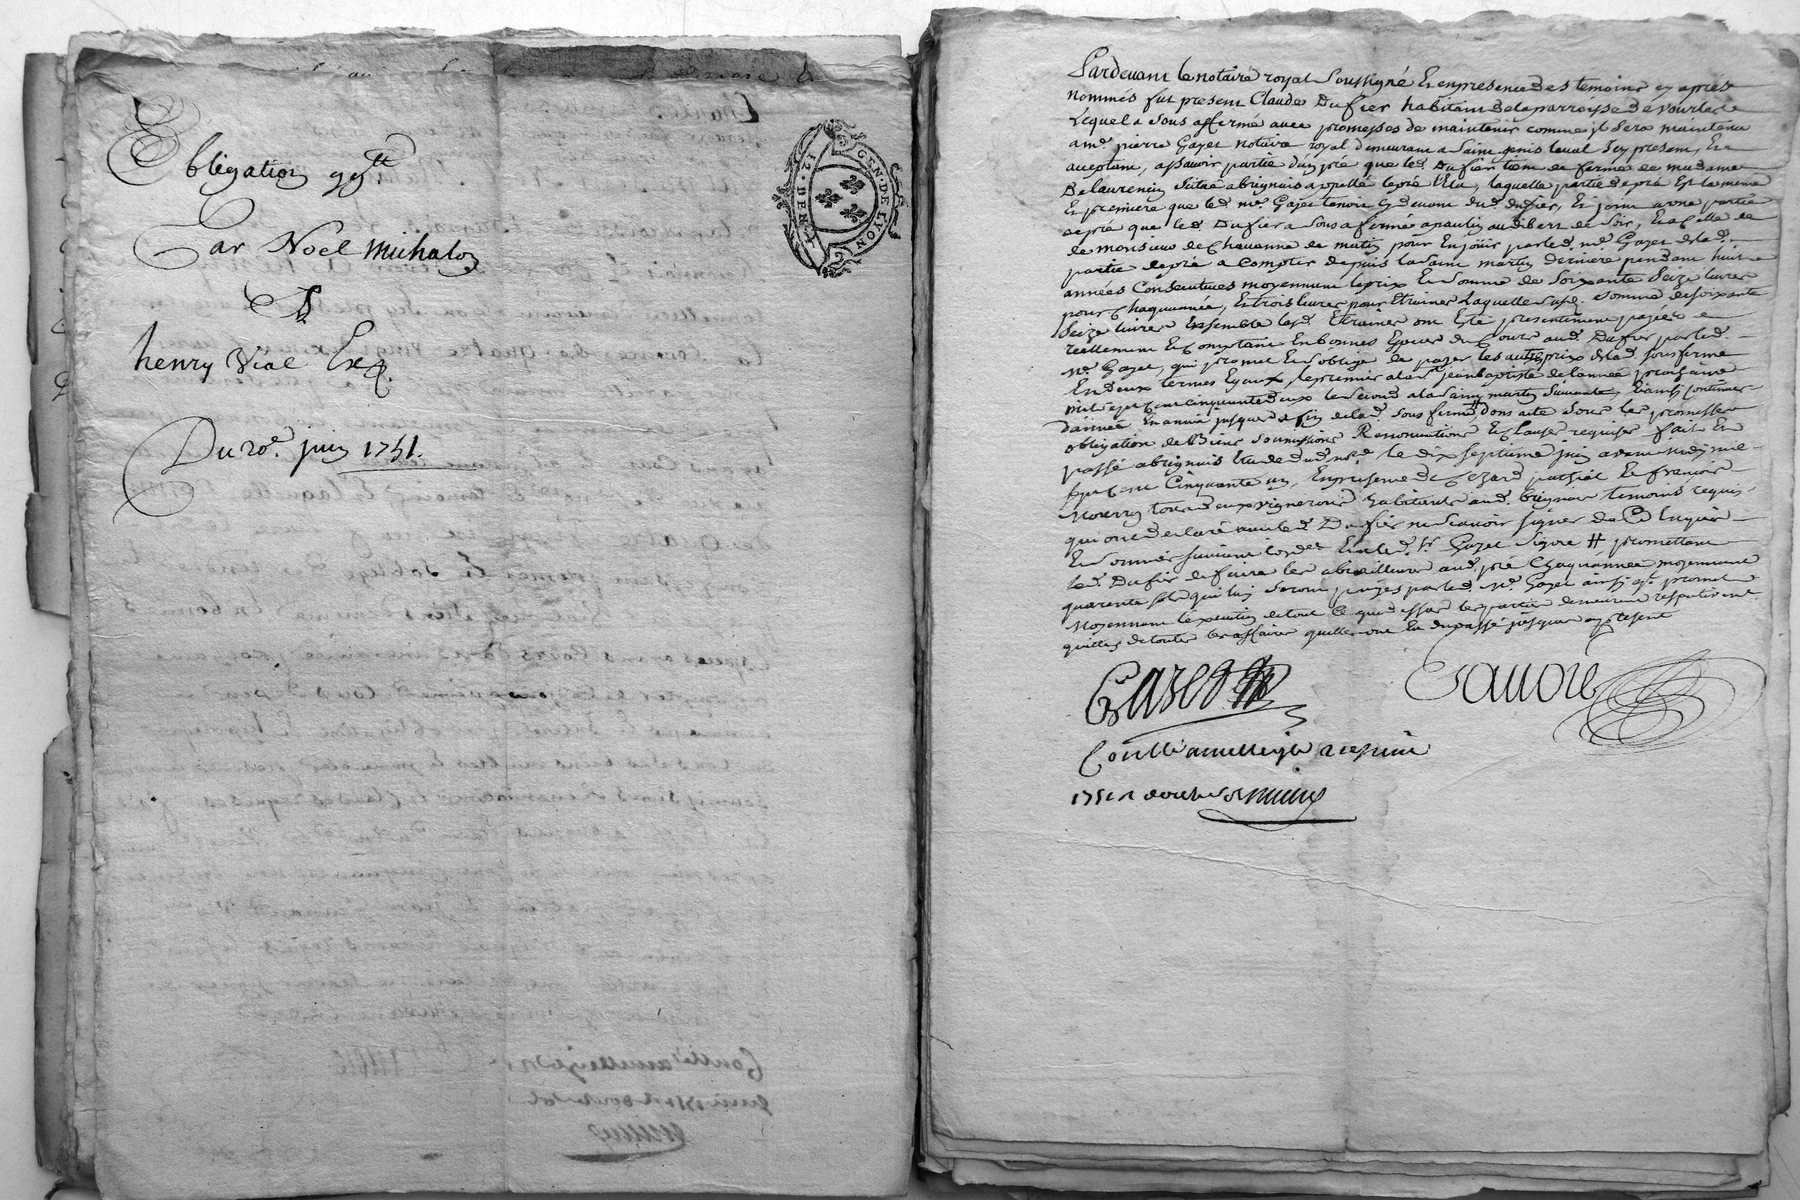 Obligation
Par Noel Michalon
A
henry Vial
Du 20e. juin 1751.
GEN. DE LYON
Pardevant le notaire royal soussigné et en presence des temoins cy apres
nommés fut present Claude Dufier habitant de la parroisse de vourle
lequel a sous affermé avec promesses de maintenir comme il sera maintenu
a me. pierre Gazet notaire royal demeurant a Saint genis laval icy present, et
acceptant, a sçavoir partie d'un pré que led. Dufier tient de ferme de madame
De laurencin scitué a brignais appellé le pré l'Eta, laquelle partie de pré est la meme
et premiere que led. me. Gazet tenoit cy devant dud. dufier, et joint a une partie
de pré que led. Dufier a sous affermé a paulin audibert de soir, et a celle de
de monsieur de Chavanne de matin pour en jouir par led. me. Gazet de lad.
partie de pré a compter depuis la saint martin derniere pendant huit
années consecutives moyennant le prix et somme de soixante seize livres
pour chaque année, et trois livres pour etraines laquelle susd. somme de soixante
seize livres ensemble lesd. etraines ont eté presentement payées
reellement et comptant en bonnes especes du cours aud. Dufier par led.
me. Gazet, qui promet et s'oblige de payer les autres prix de lad. sousferme
en deux termes egaux, le premier a la St. jean baptiste de l'année prochaine
mil sept cent cinquante deux le second a la saint martin suivante, et ainsi continuer
d'année en année jusques a fin de lad. sous ferme dont acte sous les promesses
obligation de biens soumissions Renonciations et clauses requises fait et
passé a brignais etude dud. nore. le dix septieme juin avant midy mil
sept cent cinquante un, en presence de et françois
tous deux vignerons habitants aud. brignais temoins requis
qui ont declaré avec led. Dufier ne sçavoir signer de ce enquis
et sommés suivant l'ordce. et led. Sr. Gazet signé # promettant
led. Dufier de faire les aud. pré chaque année moyennant
quarente sols qui luy seront payés par led. me. Gazet ainsi qu'il promet
moyennant l'execution de tout ce que dessus les parties demeurent respectivement
quittes de toutes les affaires qu'elles ont eu du passé jusques a present
Gazet
Conllé a le juin
1751 r douze sols